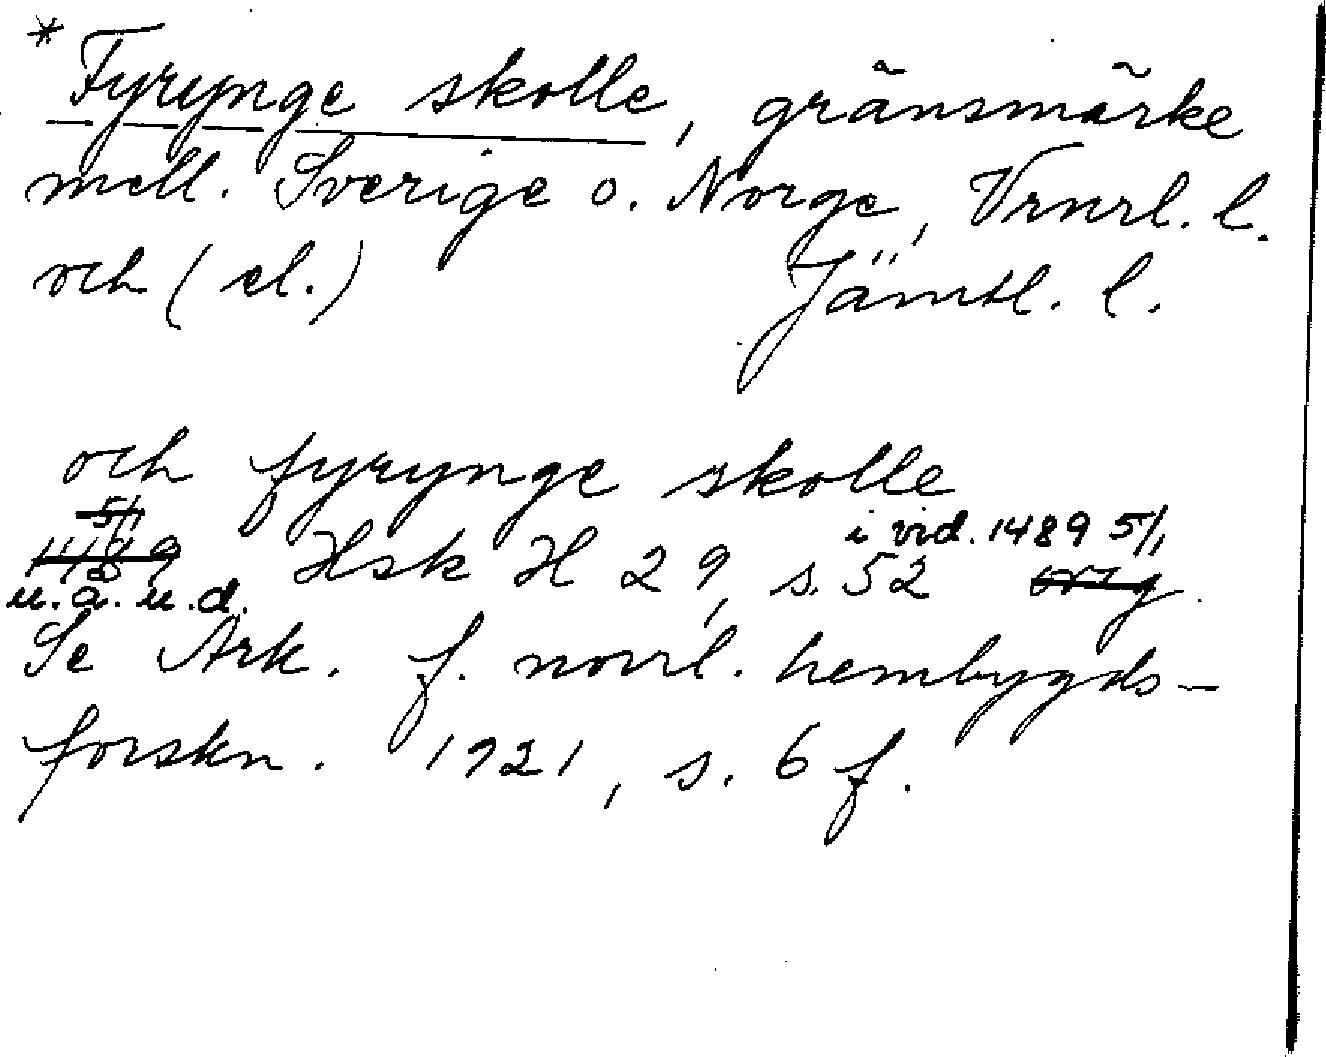 * Fyrynge skolle, gränsmärke
mell. Sverige o. Norge, Vrmrl. l.
och (el.) Jämtl. l.
och fyrynge skolle
5/1
1489 Hsk H 29, s. 52 i vid. 1489 5/1 orig
u.å.u.d.
Se Ark. f. norrl. hembygds-
forskn. 1921, s. 6 f.